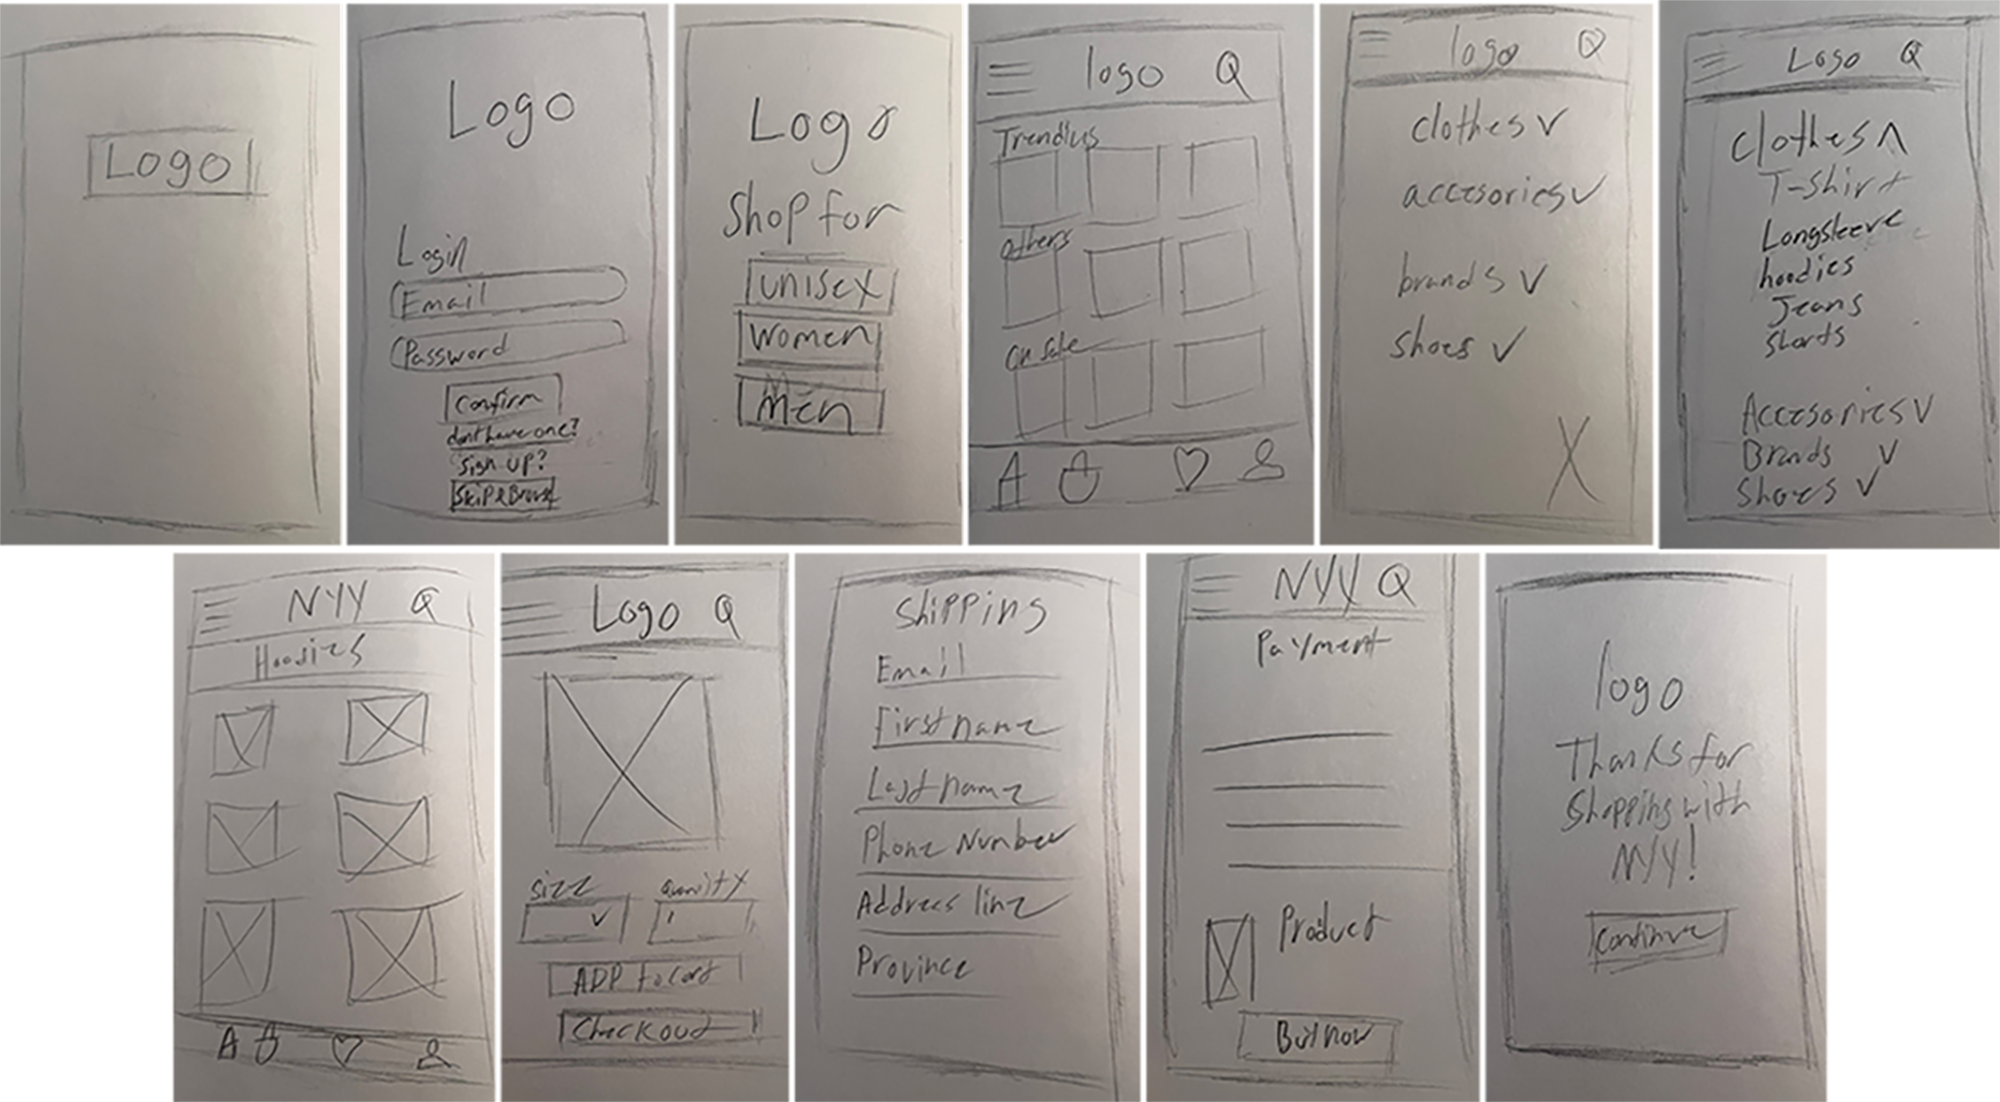 Logo
Logo
Login
Email
Password
Confirm
dont have one?
Sign up?
Skip & Browse
Logo
Shop for
unisex
Women
Men
logo
Trendius
others
On sale
logo
clothes
accesories
brands
shoes
X
Logo
clothes
T-shirt
Longsleeve
hoodies
Jeans
Shorts
Accesories
Brands
Shoes
NYY
Hoodies
Logo
size
quanity
1
ADD to cart
Checkout
Shipping
Email
First name
Last name
Phone Number
Address line
Province
NYY
Payment
Product
Buy now
logo
Thanks for
Shopping with
NYY!
Continue